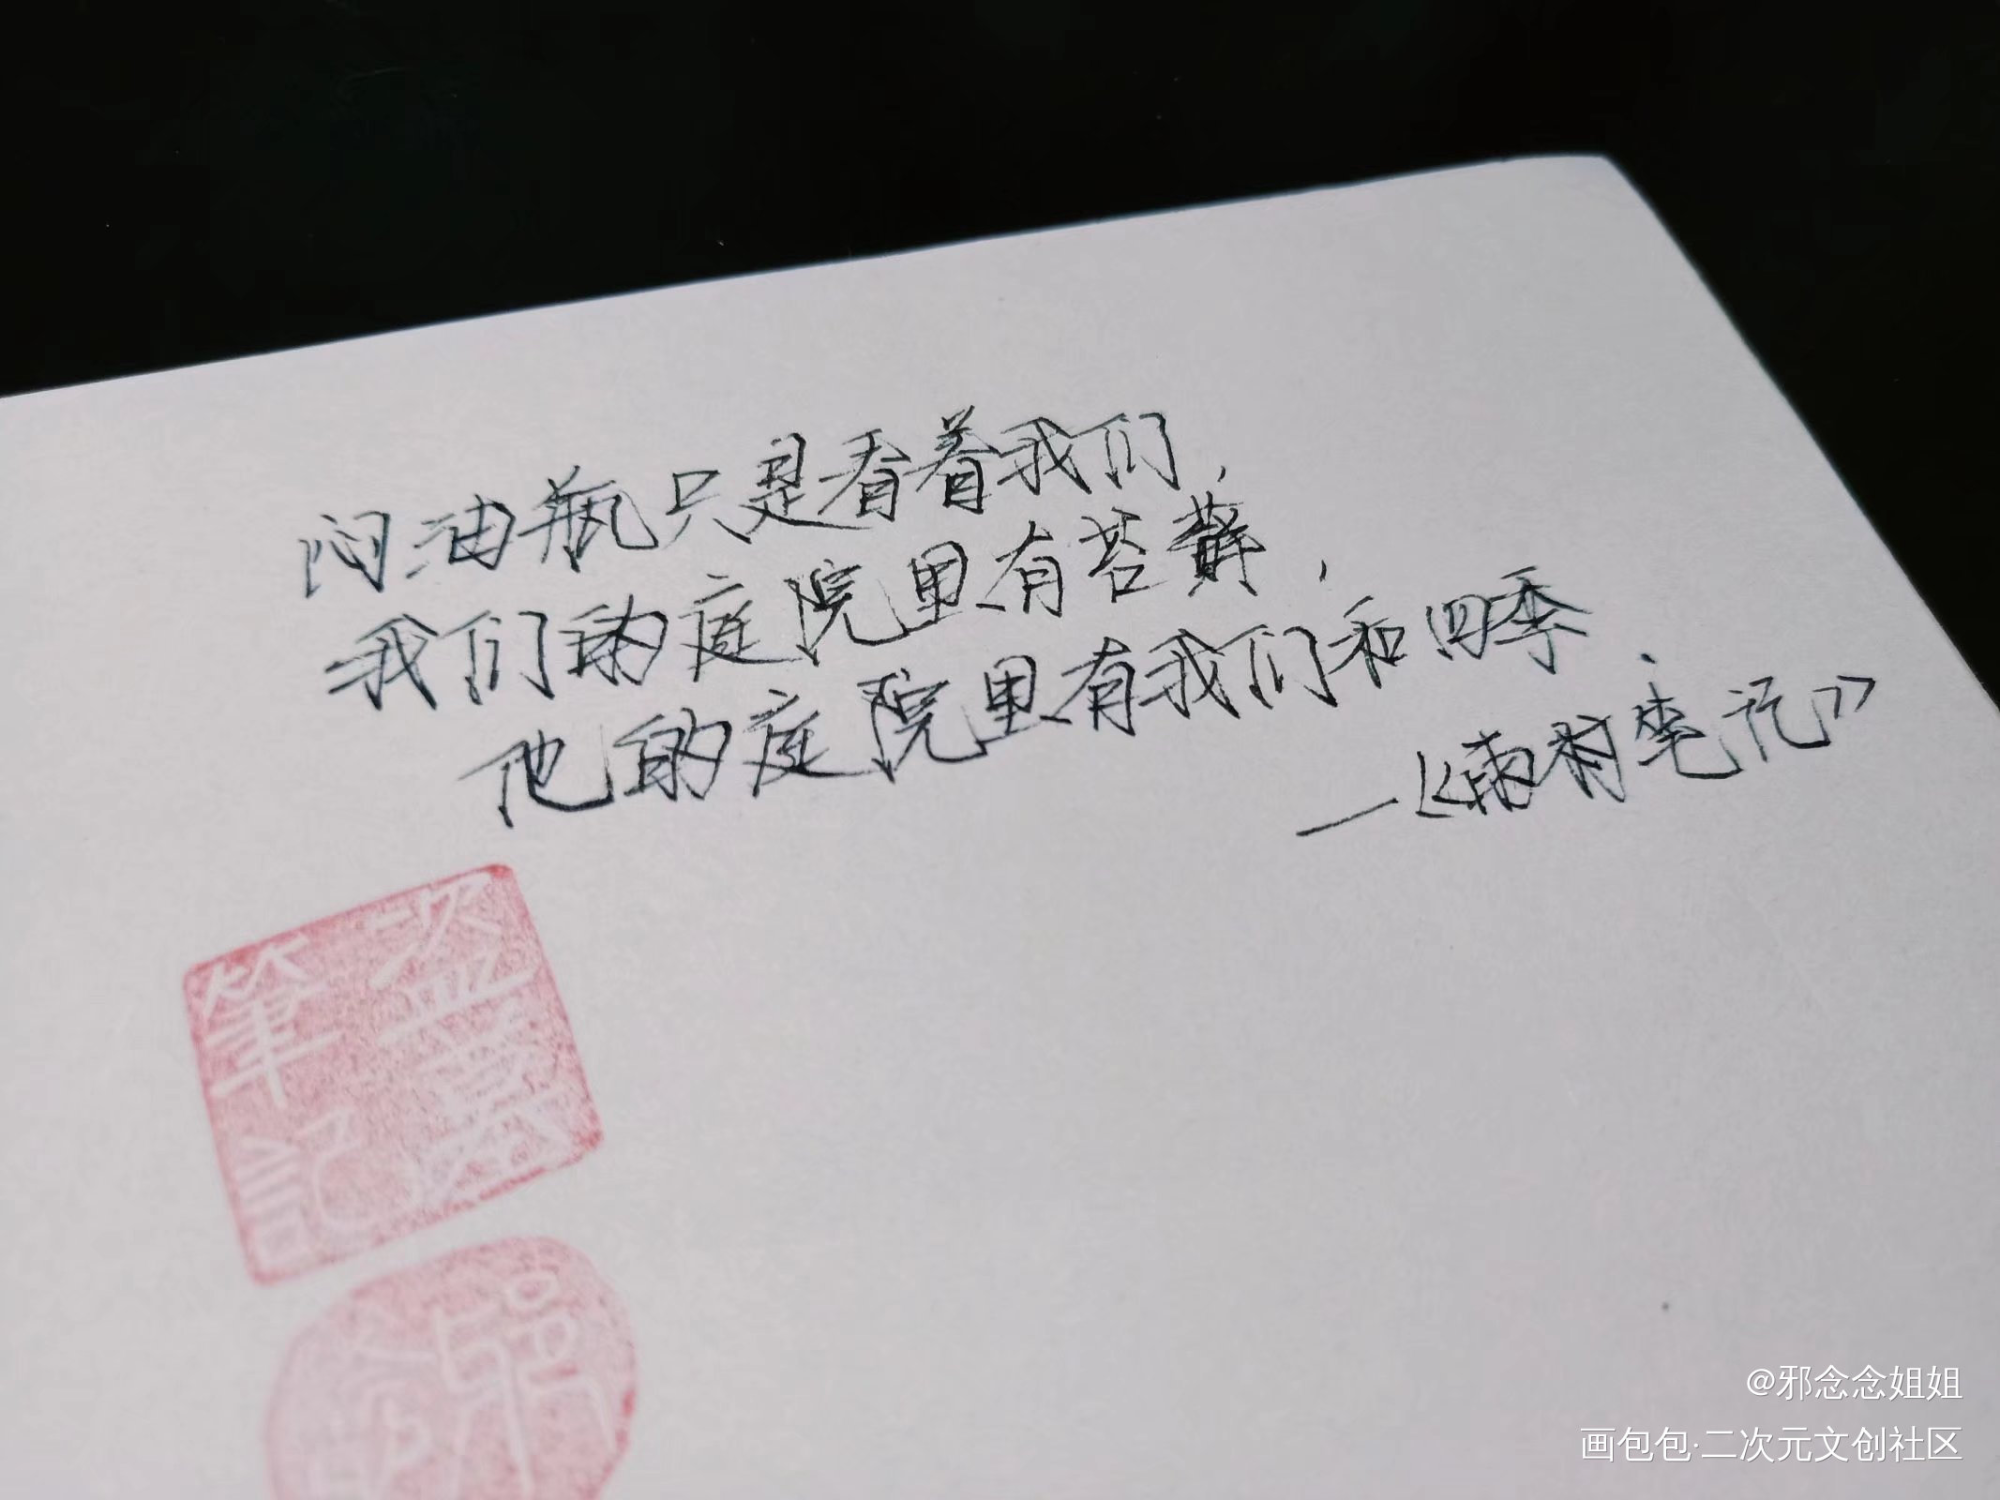 闷油瓶只是看着我们,
我们的庭院里有苔藓,
他的庭院里有我们和四季.
—《雨村笔记》
盗墓
筆記
@邪念念姐姐
画包包·二次元文创社区